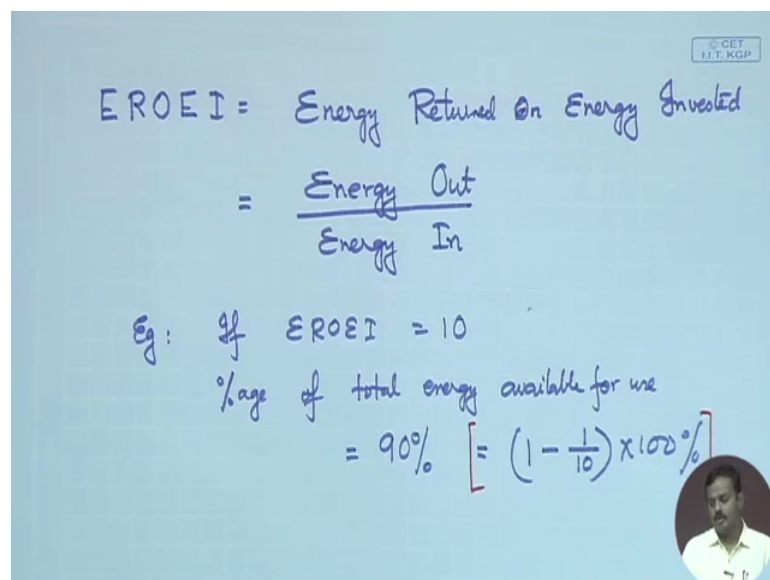 © CET
I.I.T. KGP
EROEI = Energy Returned On Energy Invested
= Energy Out
Energy In
Eg: If EROEI = 10
%age of total energy available for use
= 90% [= (1 - 1/10) × 100%]